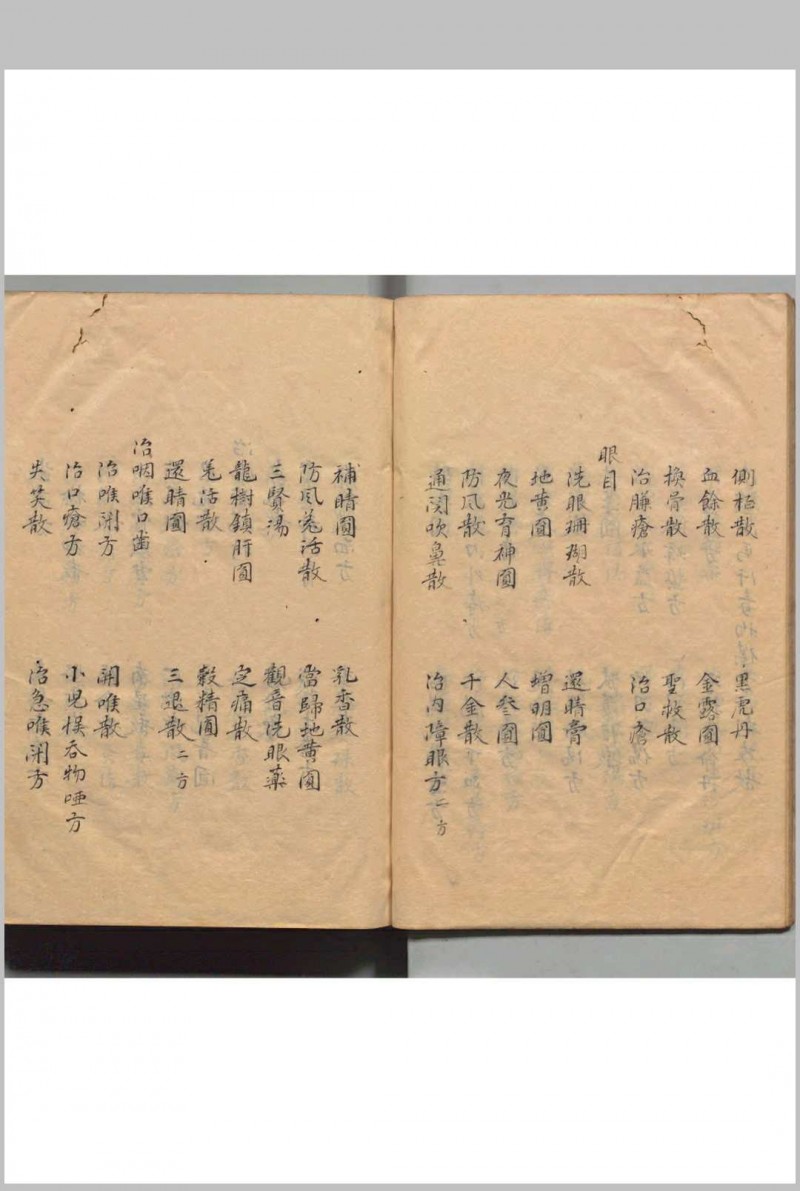 側栢散 黑虎丹
血餘散 金露圓
換骨散 聖救散
治臁瘡 治口瘡
眼目
洗眼珊瑚散 還睛膏
地黄圓 增明圓
夜光育神圓 人參圓
防风散 千金散
通関吹鼻散 治内障眼方二方
補睛圓 乳香散
防风羌活散 當歸地黄圓
三賢湯 觀音洗眼藥
龍樹鎮肝圓 定痛散
羌活散 穀精圓
還睛圓 三退散二方
治咽喉口齒
治喉閉方 開喉散
治口瘡方 小兒悮吞物哑方
失笑散 治急喉閉方